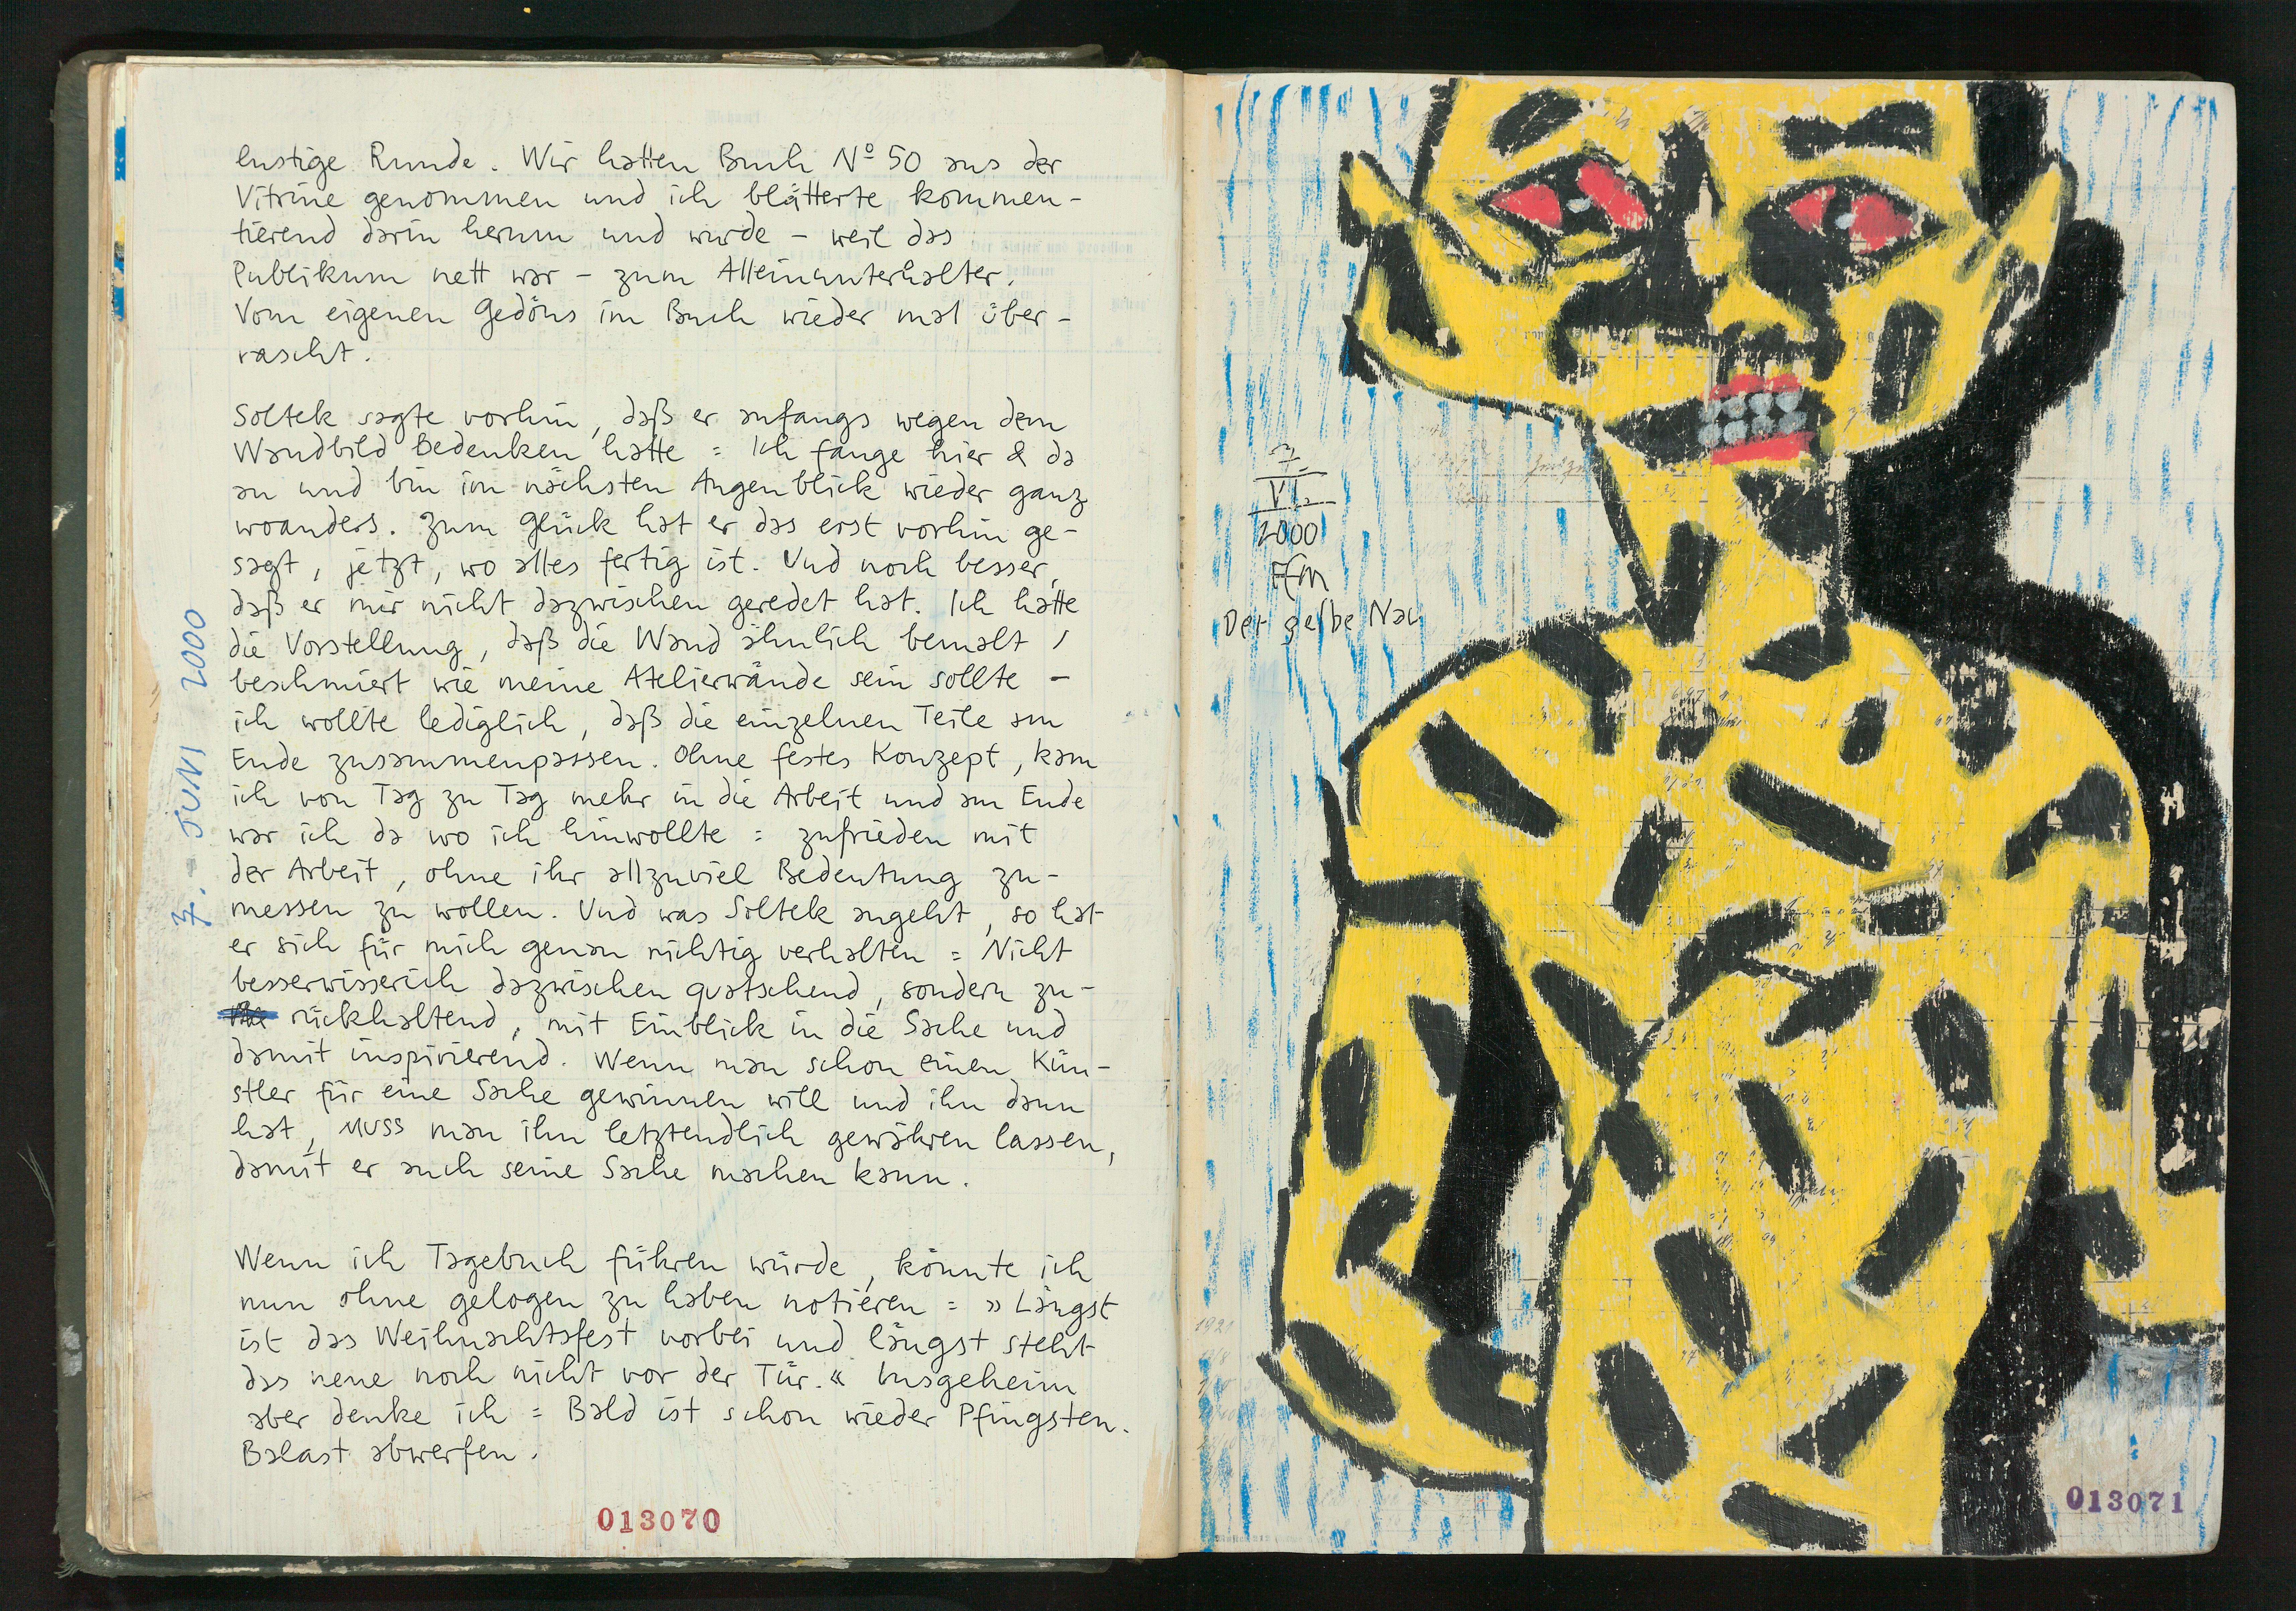 lustige Runde. Wir hatten Buch Nº 50 aus der
Vitrine genommen und ich blätterte kommen-
tierend darin herum und wurde - weil das
Publikum nett war - zum Alleinunterhalter.
Vom eigenen Gedöns im Buch wieder mal über-
rascht.
Soltek sagte vorhin, daß er anfangs wegen dem
Wandbild Bedenken hatte = Ich fange hier & da
an und bin im nächsten Augenblick wieder ganz
woanders. Zum Glück hat er das erst vorhin ge-
sagt, jetzt, wo alles fertig ist. Und noch besser,
daß er mir nicht dazwischen geredet hat. Ich hatte
die Vorstellung, daß die Wand ähnlich bemalt /
beschmiert wie meine Atelierwände sein sollte -
ich wollte lediglich, daß die einzelnen Teile am
Ende zusammenpassen. Ohne festes Konzept, kam
ich von Tag zu Tag mehr in die Arbeit und am Ende
war ich da wo ich hinwollte = zufrieden mit
der Arbeit, ohne ihr allzuviel Bedeutung zu-
messen zu wollen. Und was Soltek angeht, so hat
er sich für mich genau richtig verhalten = Nicht
besserwisserich dazwischen quatschend, sondern zu-
rückhaltend, mit Einblick in die Sache und
damit inspirierend. Wenn man schon einen Kün-
stler für eine Sache gewinnen will und ihn dann
hat, MUSS man ihn letztendlich gewähren lassen,
damit er auch seine Sache machen kann.
Wenn ich Tagebuch führen würde, könnte ich
nun ohne gelogen zu haben notieren = »Längst
ist das Weihnachtsfest vorbei und längst steht
das neue noch nicht vor der Tür.« Insgeheim
aber denke ich = Bald ist schon wieder Pfingsten.
Balast abwerfen.
7. JUNI 2000
013070
7
VI.
2000
Ffm
Der gelbe
013071